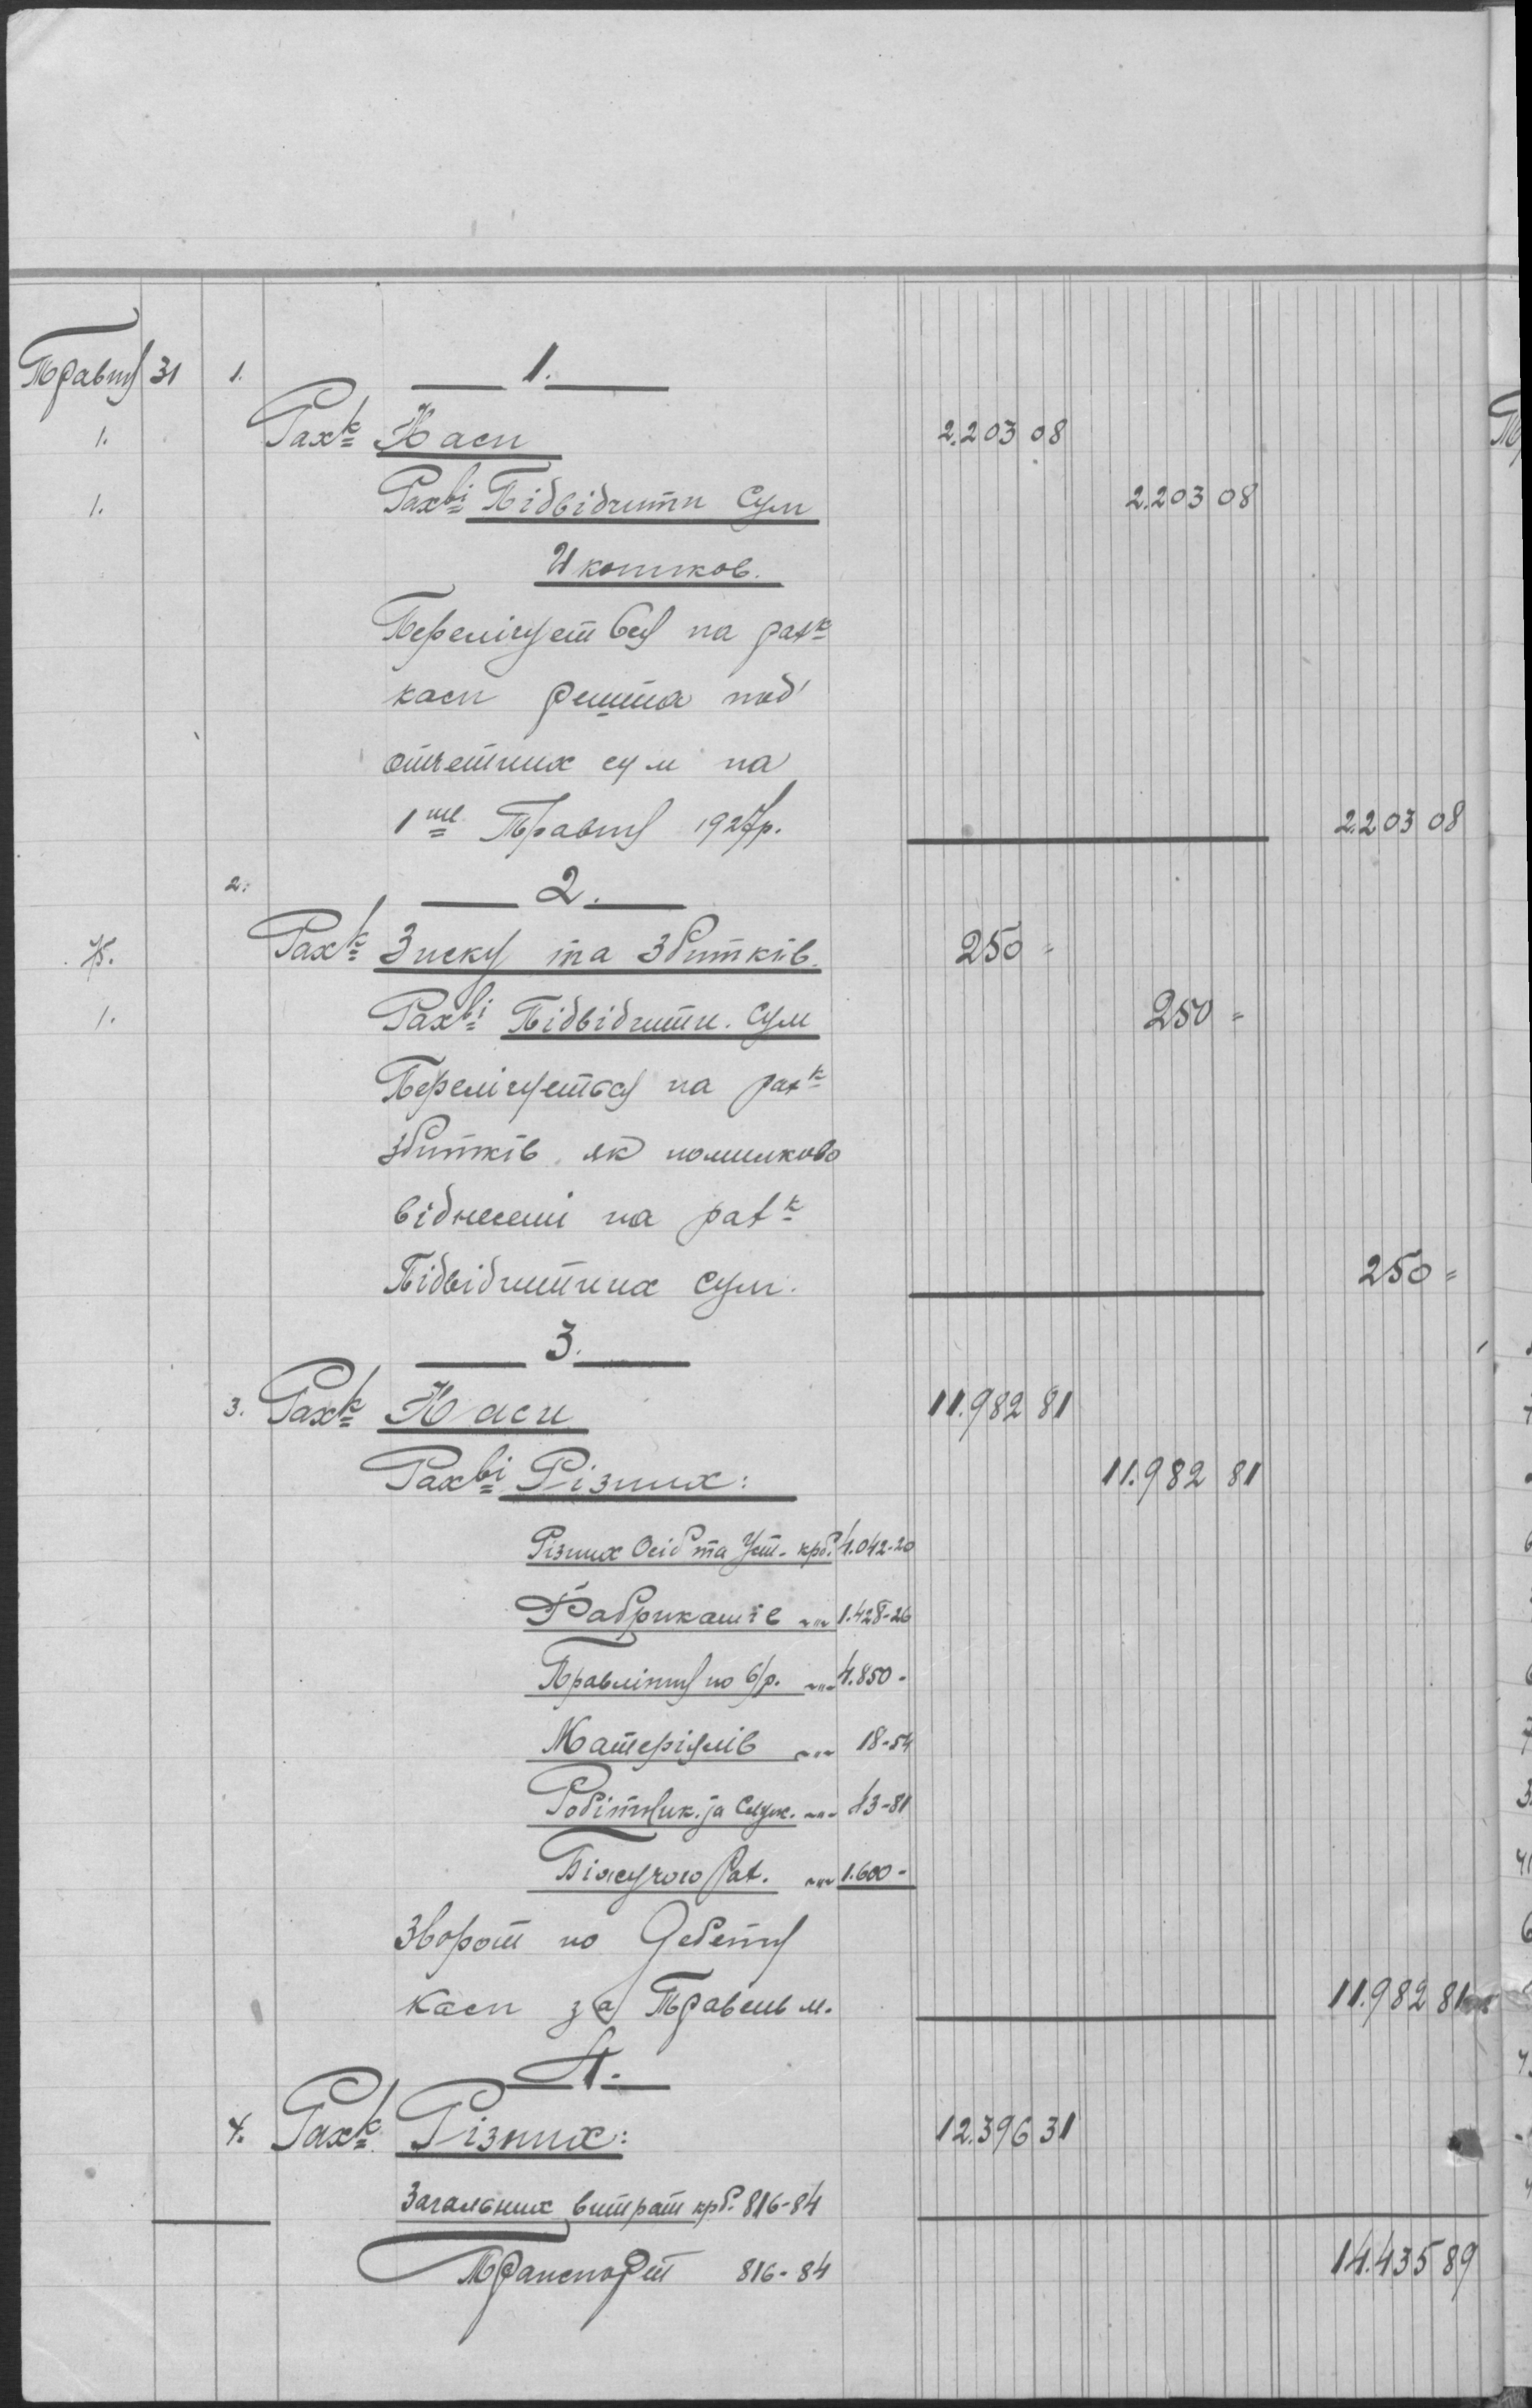 Травня 31 1. 1.
1. Рахк Каси 2.203 08
1. Рахві Підвідчитн Сум 2.203 08
И котиков.
Перелічуеться на рахк
каси решта под
отчетних сум на
1ше Травня 1927р.
2.203 08
2. 2.
Рахк Зиску та Збитків. 250 =
1. Рахві Підвідчитн. Сум 250 =
Перелічуеться на рахк
збитків як помилково
віднесені на рахк
Підвідчитних сум. 250 =
3.
3. Рахк Каси 11.982 81
Рахві Різних: 11.982 81
Різних Осіб та Уст. крб. 4.042-20
Фабрикатів -"- 1.428-26
Правління по б/р. -"- 4.850-
Матеріялів -"- 18-54
Робітник. та Служ. -"- 43-81
Біжучого Рах. -"- 1.600-
Зворот по Дебету
Каси за Травень м. 11.982 81
4.
4. Рахк Різних: 12.396 31
Загальних витрат крб. 816-84
Транспорт 816-84 14.435 89